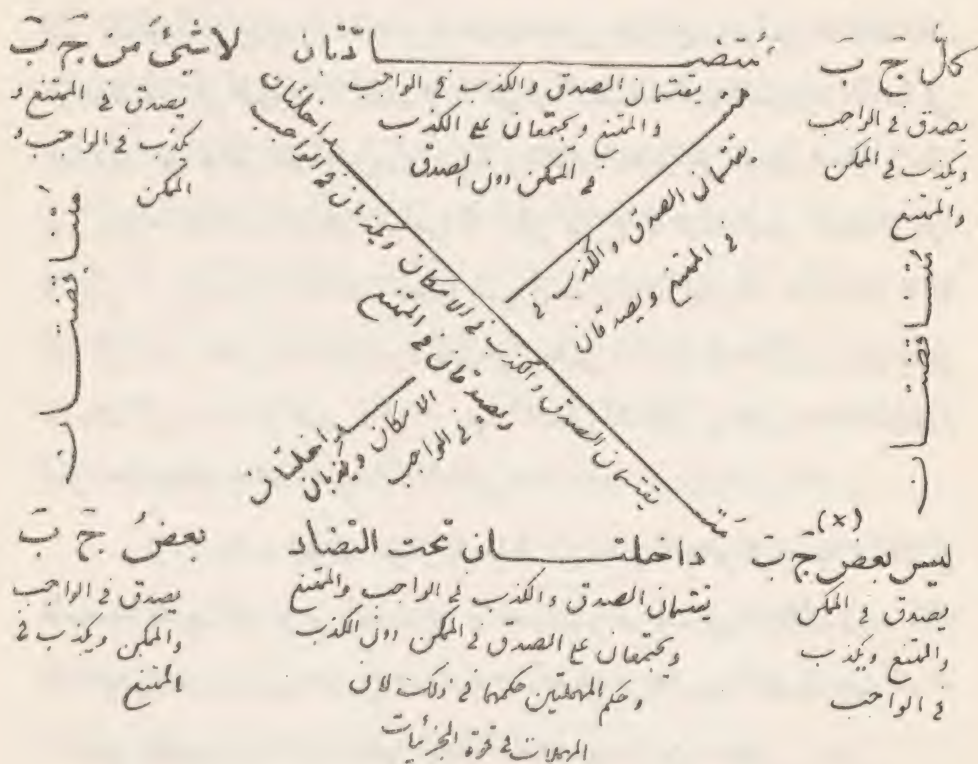 كلّ جَ بَ
يصدق في الواجب
ويكذب في الممكن
والممتنع
مُتضـــادّتان
يقتسمان الصدق والكذب في الواجب
والممتنع ويجتمعان على الكذب
في الممكن دون الصدق
لا شيئَ من جَ بَ
يصدق في الممتنع و
يكذب في الواجب و
الممكن
مُتناقضتـــان
مُتناقضتـــان
يقتسمان الصدق والكذب في
في الممتنع ويصدقان
داخلتان
يقتسمان الصدق والكذب في الامكان ويكذبان في الواجب
ويصدقان في الممتنع
الامكان ويكذبان
في الواجب
داخلتان
(×)
ليس بعض جَ بَ
يصدق في الممكن
والممتنع ويكذب
في الواجب
داخلتـــان تحت التضاد
يقتسمان الصدق والكذب في الواجب والممتنع
ويجتمعان على الصدق في الممكن دون الكذب
وحكم المهملتين حكمهما في ذلك لان
المهملات في قوة الجزئيات
بعضُ جَ بَ
يصدق في الواجب
والممكن ويكذب في
الممتنع